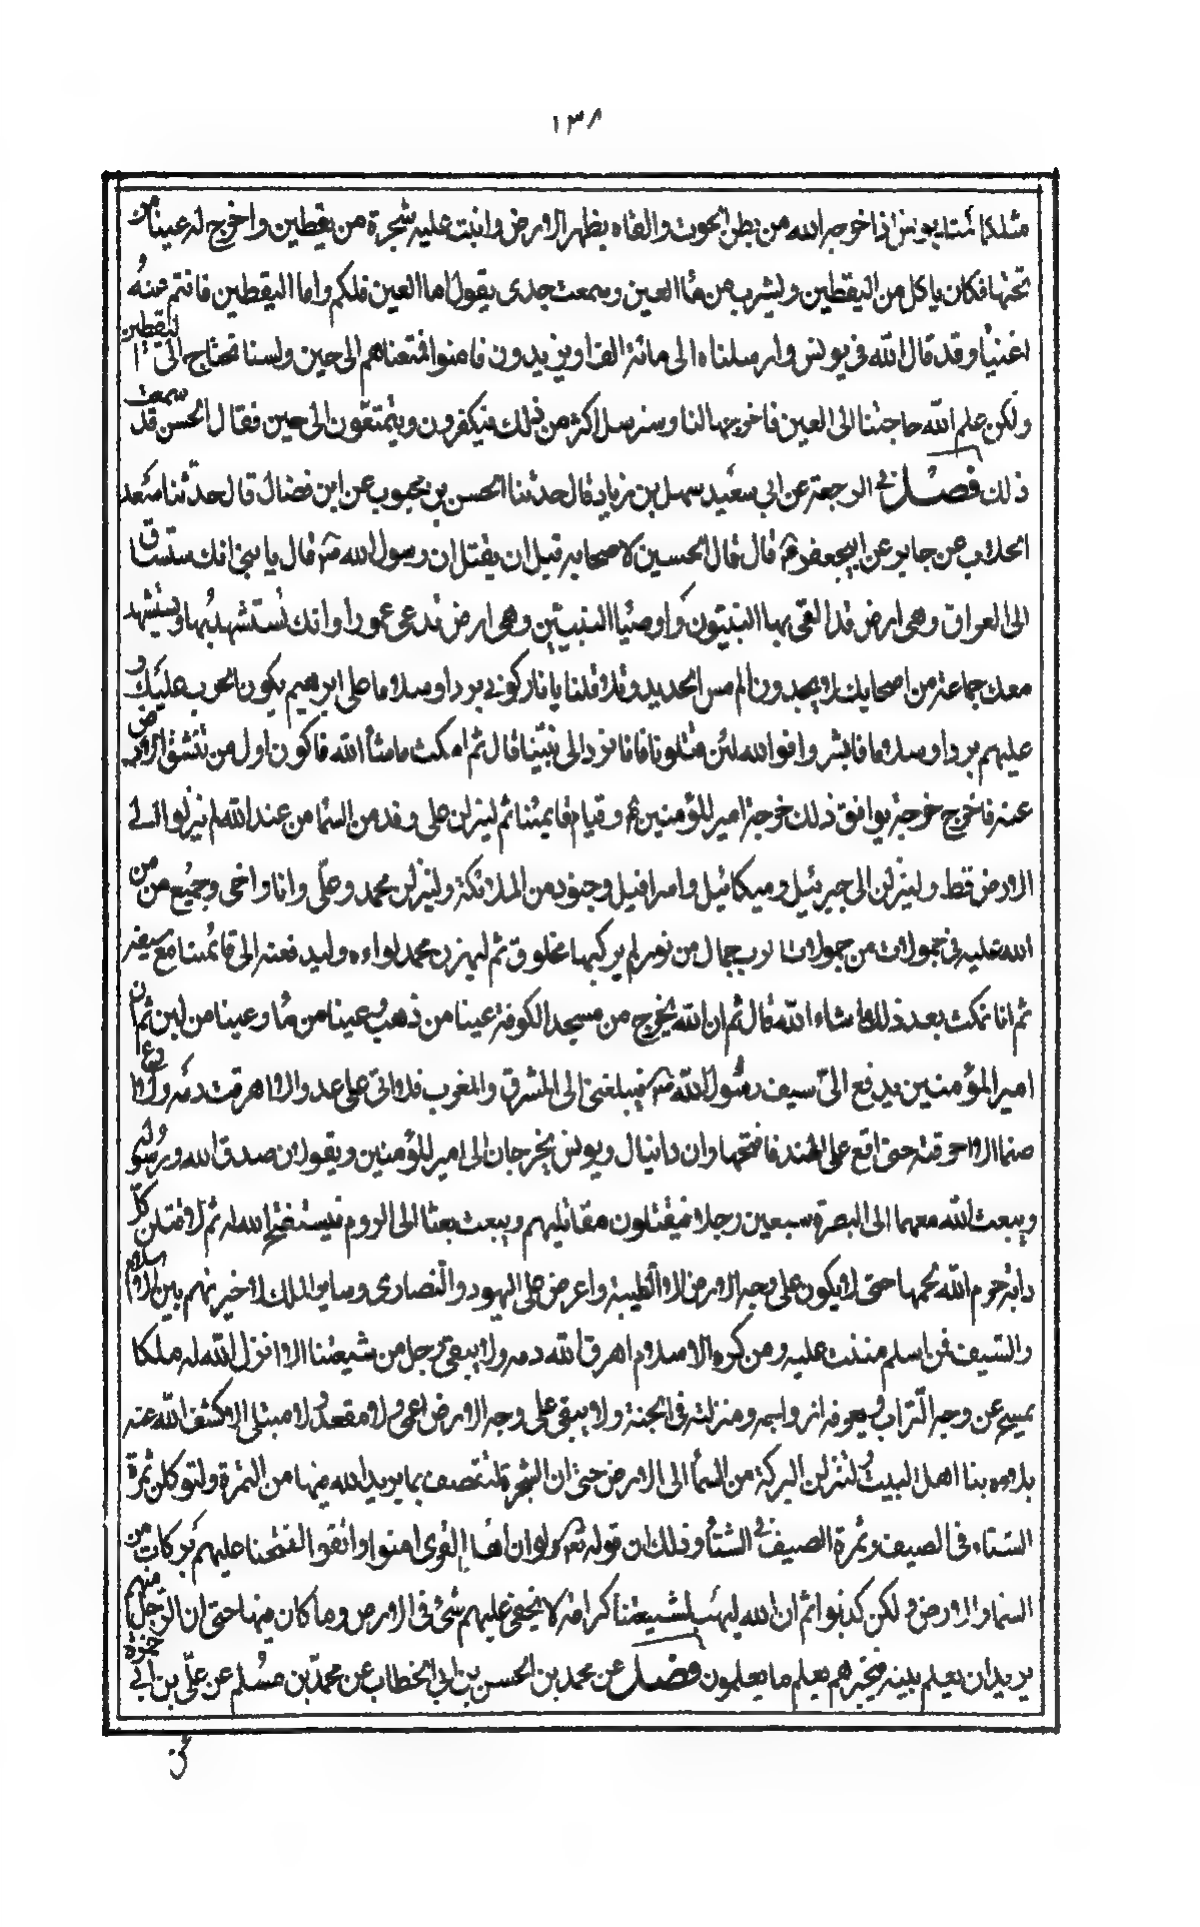 ١٣٨
مثلكما مثل يونس اذ اخرجه الله من بطن الحوت والقاه بظهر الارض وانبت عليه شجرة من يقطين واخرج له عينا من
تحتها فكان ياكل من اليقطين ويشرب من ماء العين وسمعت جدى يقول اما العين فلكم واما اليقطين فانتم عنه
اغنياء وقد قال الله فى يونس وارسلناه الى مائة الف او يزيدون فامنوا فمتعناهم الى حين ولسنا نحتاج الى اليقطين
ولكن علم الله حاجتنا الى العين فاخرجها لنا وسنرسل اكثر من ذلك فيكفرون ويتمتعون الى حين فقال الحسن قد سمعت
ذلك فصل فى الرجعة عن ابى سعيد سهل بن زياد قال حدثنا الحسن بن محبوب عن ابن فضال قال حدثنا سعد
الجلاب عن جابر عن ابيجعفر ع قال قال الحسين لاصحابه قبل ان يقتل ان رسول الله ص قال يا بنى انك ستساق
الى العراق وهى ارض قد التقى بها النبيون واوصياء النبيين وهى ارض تدعى عمورا وانك تستشهد بها ويستشهد
معك جماعة من اصحابك لا يجدون الم مس الحديد وتلا قلنا يا نار كونى بردا وسلاما على ابرهيم يكون الحرب عليك و
عليهم بردا وسلاما فابشروا فوالله لئن قتلونا فانا نرد الى نبينا قال ثم امكث ما شاء الله فاكون اول من تنشق الارض
عنه فاخرج خرجة يوافق ذلك خرجة امير المؤمنين ع وقيام قائمنا ثم لينزلن على وفد من السماء من عند الله لم ينزلوا الى
الارض قط ولينزلن الى جبرئيل وميكائيل واسرافيل وجنود من الملائكة ولينزلن محمد وعلى وانا واخى وجميع من من
الله عليه فى حمولات من حمولات الرب جمال من نور لم يركبها مخلوق ثم ليهزن محمد لواءه وليدفعنه الى قائمنا مع سيفه
ثم انا نمكث بعد ذلك ما شاء الله قال ثم ان الله يخرج من مسجد الكوفة عينا من ذهب وعينا من ماء وعينا من لبن ثم ان
امير المؤمنين يدفع الى سيف رسول الله ص فيبلغنى الى المشرق والمغرب فلا اتى على عدو الا اهرقت دمه ولا ادع
صنما الا احرقته حتى اقع على الهند فافتحها وان دانيال ويونس يخرجان الى امير المؤمنين ويقولان صدق الله ورسوله
ويبعث الله معهما الى البصرة سبعين رجلا فيقتلون مقاتليهم ويبعث بعثا الى الروم فيستفتح الله له ثم لاقتلن كل
دابة حرم الله لحمها حتى لا يكون على وجه الارض الا الطيبة واعرض على اليهود والنصارى وساير الملل لاخيرنهم بين الاسلام
والسيف فمن اسلم مننت عليه ومن كره الاسلام اهرق الله دمه ولا يبقى رجل من شيعتنا الا انزل الله له ملكا
يمسح عن وجهه التراب ويعرفه ازواجه ومنزلته فى الجنة ولا يبقى على وجه الارض اعمى ولا مقعد ولا مبتلى الا كشف الله عنه
بلاءه بنا اهل البيت ولتنزلن البركة من السماء الى الارض حتى ان الشجرة لتتصف بما يريد الله فيها من الثمرة ولتوكلن ثمرة
الشتاء فى الصيف وثمرة الصيف فى الشتاء وذلك ان قوله تع ولو ان اهل القرى امنوا واتقوا لفتحنا عليهم بركات من
السماء والارض ولكن كذبوا ثم ان الله ليهب لشيعتنا كرامة لا يخفى عليهم شئ فى الارض وما كان فيها حتى ان الرجل منهم
يريد ان يعلم بيته فيخبرهم بعلم ما يعلمون فصل عن محمد بن الحسن بن ابى الخطاب عن محمد بن مسلم عن على بن ابى حمزة
عن